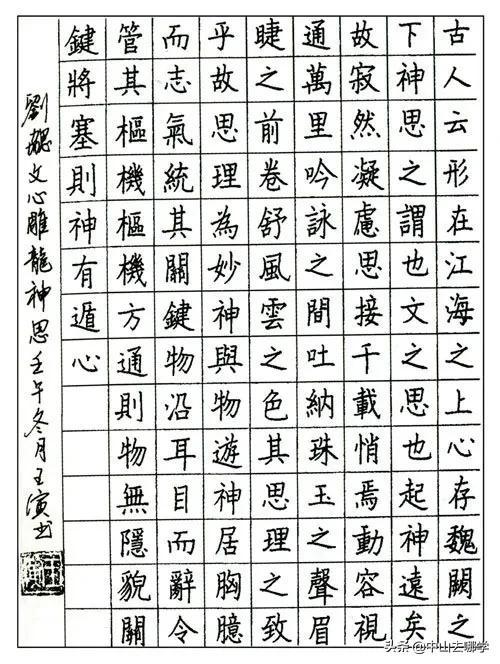 古人云形在江海之上心存魏闕之
下神思之謂也文之思也起神遠矣
故寂然凝慮思接千載悄焉動容視
通萬里吟詠之間吐納珠玉之聲眉
睫之前卷舒風雲之色其思理之致
乎故思理為妙神與物遊神居胸臆
而志氣統其關鍵物沿耳目而辭令
管其樞機樞機方通則物無隱貌關
鍵將塞則神有遁心
劉勰文心雕龍神思壬午冬月王演书
头条@中山去哪学